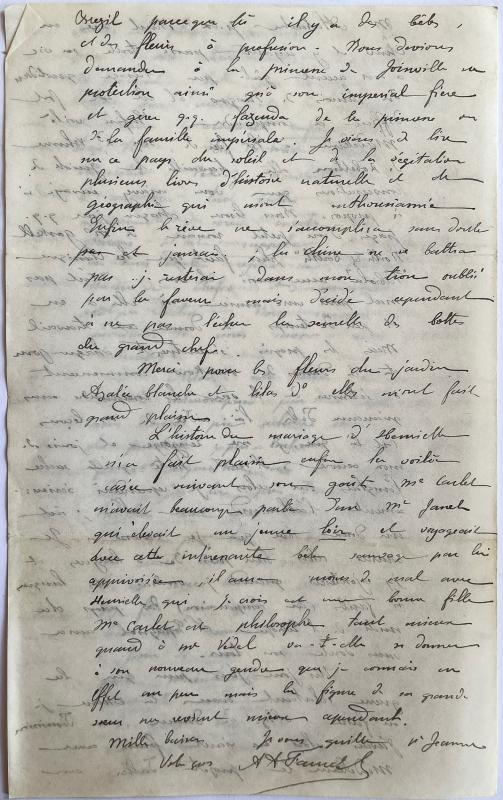 Brézil parce que là il y a des bêtes,
et des fleurs à profusion. Nous devions
demander à la princesse de Joinville sa
protection ainsi qu'à son impérial frère
et gérer q.q. fazenda de la princesse ou
de la famille impériale. Je viens de lire
sur ce pays du soleil et de la végétation
plusieurs livres d'histoire naturelle et de
géographie qui m'ont enthousiasmée
Enfin le rêve ne s'accomplira sans doute
pas et jamais, la chine ne se battra
pas je resterai dans mon oublié
par la faveur mais décidé cependant
à ne pas lécher les semelles des bottes
du grand chef.
Merci pour les fleurs du jardin
Azalée blanche et lilas d° elles m'ont fait
grand plaisir
L'histoire du mariage d'Henriette
m'a fait plaisir enfin la voilà
casée suivant son goût. Me Carlet
m'avait beaucoup parlé d'un Mr Janet
qui élevait un jeune loir et voyageait
avec cette intéressante bête sauvage par lui
apprivoisée, il aura moins de mal avec
Henriette qui je crois est une bonne fille
Me Carlet est philosophe tant mieux
quand à me Vidal va-t-elle se donner
à son nouveau gendre que je connais en
effet un peu mais la figure de sa grande
sœur me revient mieux cependant.
Mille baisers Je vous quitte Jeanne
Votre gros